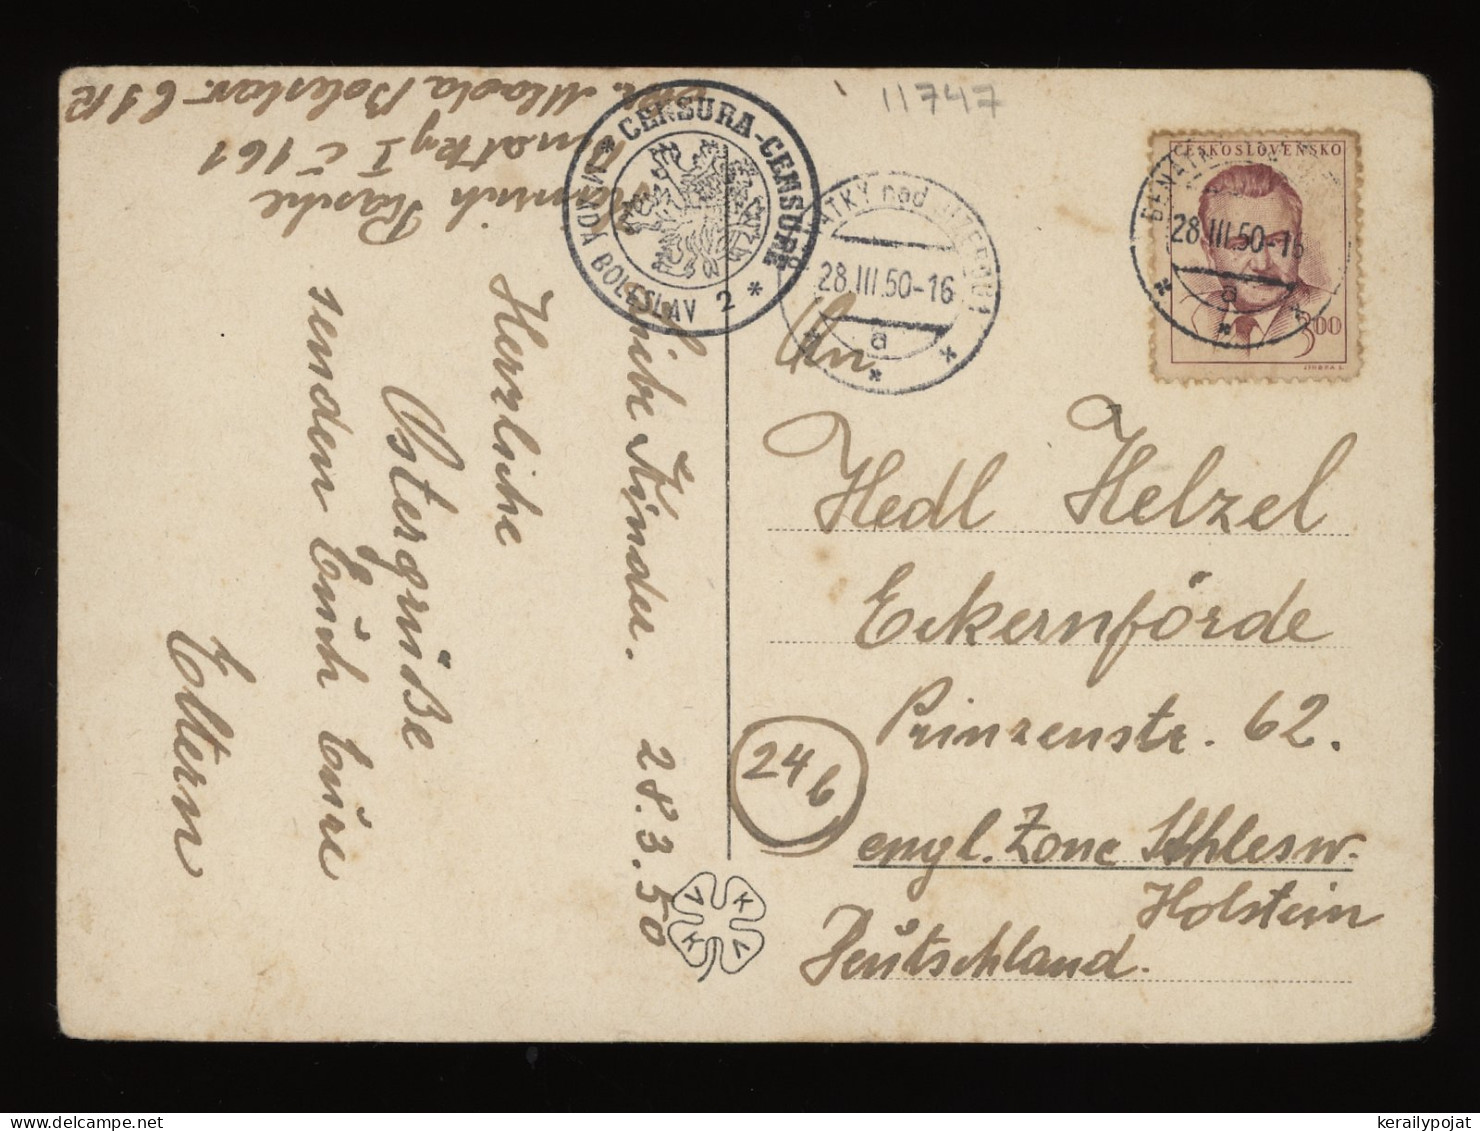 11747
ČESKOSLOVENSKO
3.00
28.III.50-16
a
28.III.50-16
a
CENSURA-CENSURE
MLADÁ BOLESLAV 2
An
Hedl Helzel
Eckernförde
Prinzenstr. 62.
24b
engl. Zone Schlesw.
Holstein
Deutschland.
28.3.50
Liebe Kinder.
Herzliche
Ostergrüße
senden Euch Eure
Eltern
Heinrich
Benátky I č 161
Mladá Boleslav
V K V K
kerailypojat